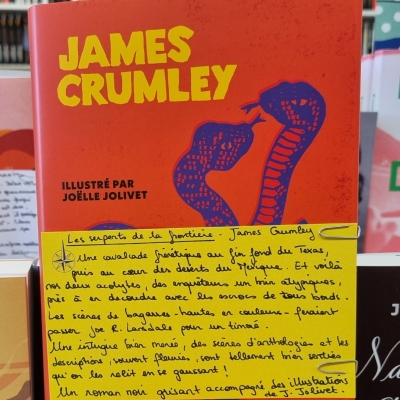 JAMES
CRUMLEY
ILLUSTRÉ PAR
JOËLLE JOLIVET
Les serpents de la frontière - James Crumley
Une cavalcade frénétique au fin fond du Texas,
puis au cœur des déserts du Mexique. Et voilà
nos deux acolytes, des enquêteurs un brin atypiques,
prêts à en découdre avec les escrocs de tous bords.
Les scènes de bagarres - hautes en couleurs - feraient
passer Joe R. Lansdale pour un timoré.
Une intrigue bien menée, des scènes d'anthologies et les
descriptions, souvent fleuries, sont tellement bien senties
qu'on les relit en se gaussant !
Un roman noir grisant accompagné des illustrations
de J. Jolivet.
J
Na